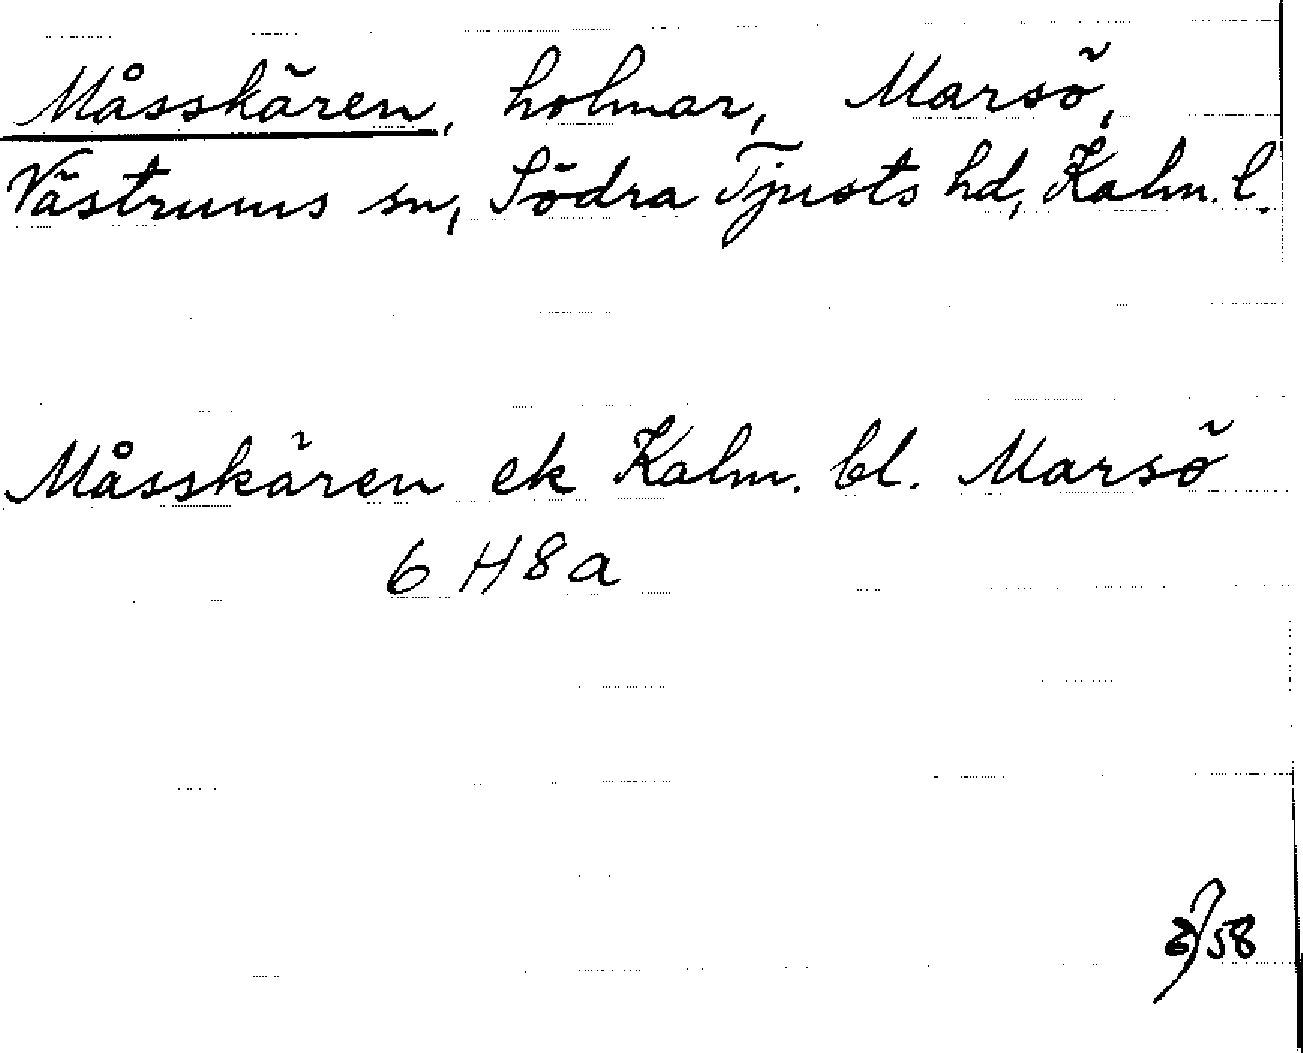 Måsskären, holmar, Marsö,
Västrums sn, Södra Tjusts hd, Kalm. l.
Måsskären ek Kalm. bl. Marsö
6 H 8 a